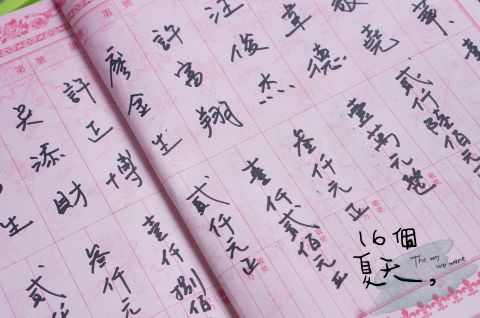 敬堯
貳仟陸佰元
韋德
壹萬元整
汪俊杰
參仟元正
許富翔
壹仟貳佰元正
廖金生
貳仟元正
許正博
壹仟捌佰
吳添財
參仟元
生
貳
16個
夏天,
The way
we were